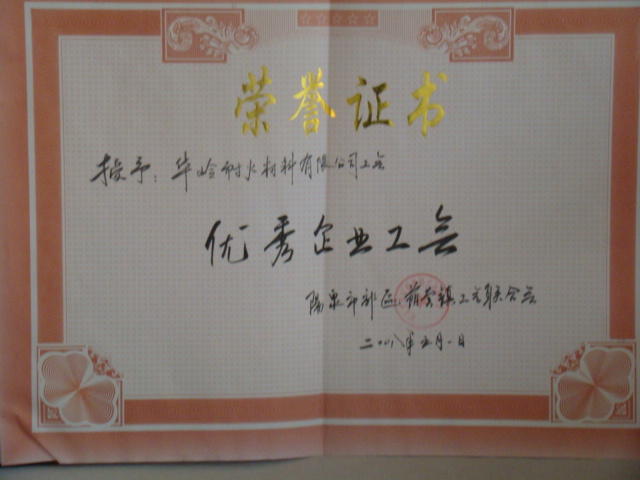 荣誉证书
授予：华岭耐火材料有限公司工会
优秀企业工会
阳泉市郊区荫营镇工会联合会
二〇〇八年五月一日